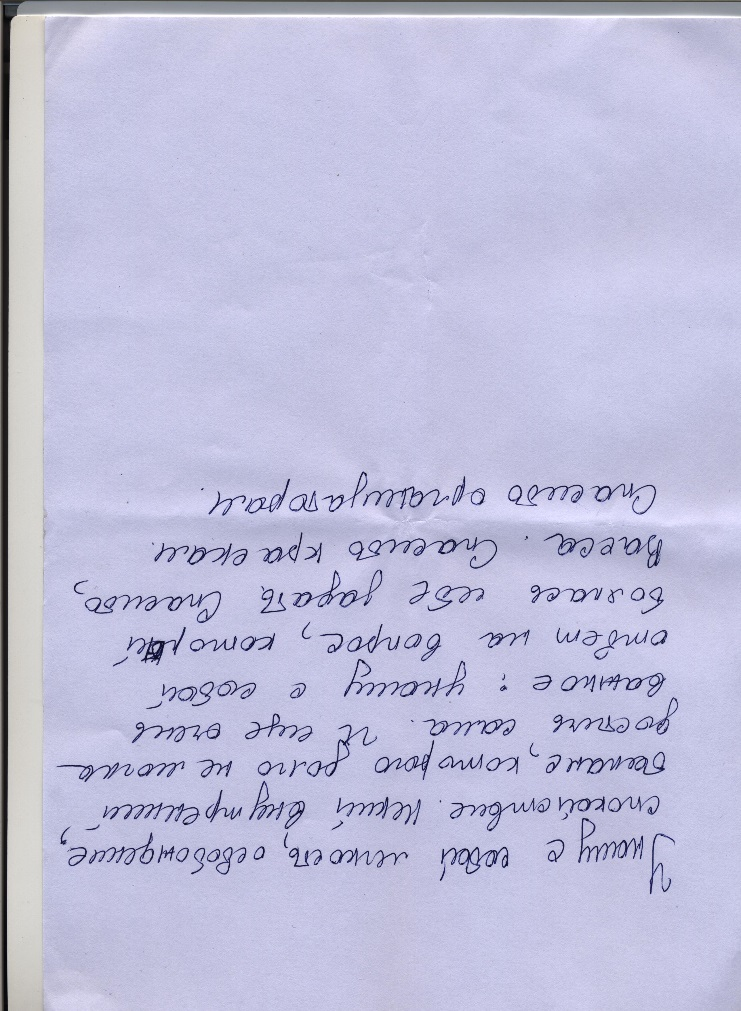 Уношу с собой легкость, освобождение,
спокойствие. Некий внутренний
баланс, которого долго не могла
достичь сама. И еще очень
важное: уношу с собой
ответ на вопрос, который
боялась себе задать. Спасибо,
Васса. Спасибо краскам.
Спасибо организаторам.